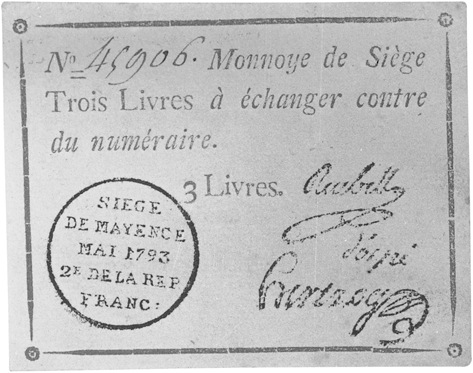 No. 45906. Monnoye de Siège
Trois Livres à échanger contre
du numéraire.
3 Livres.
SIEGE
DE MAYENCE
MAI 1793
2E DE LA REP
FRANC: